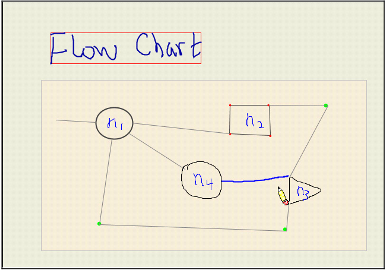 Flow Chart
n1
n2
n4
n3